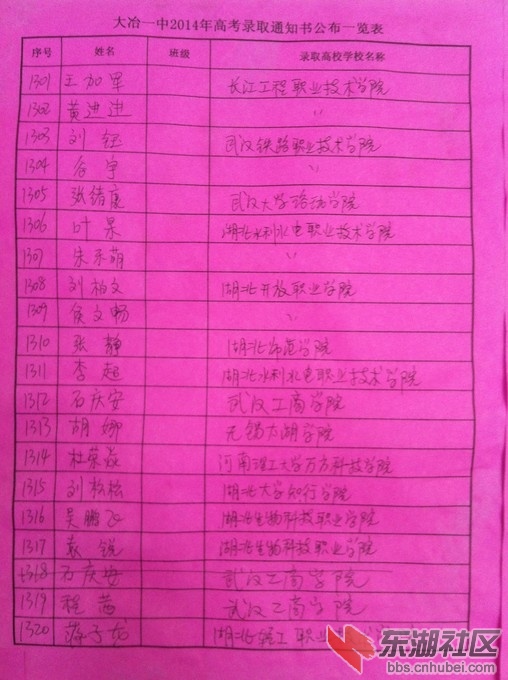 大冶一中2014年高考录取通知书公布一览表
序号 姓名 班级 录取高校学校名称
1301 王加军 长江工程职业技术学院
1302 黄进进 〃
1303 刘钰 武汉铁路职业技术学院
1304 谷宇 〃
1305 张绪康 武汉大学珞珈学院
1306 叶果 湖北水利水电职业技术学院
1307 朱永萌 〃
1308 刘柏文 湖北开放职业学院
1309 侯文畅 〃
1310 张静 湖北师范学院
1311 李超 湖北水利水电职业技术学院
1312 石庆安 武汉工商学院
1313 胡娜 无锡太湖学院
1314 杜荣 河南理工大学万方科技学院
1315 刘松松 湖北大学知行学院
1316 吴鹏飞 湖北生物科技职业学院
1317 袁锐 湖北生物科技职业学院
1318 石庆安 武汉工商学院
1319 程茜 武汉工商学院
1320 蒋子龙 湖北轻工职业
东湖社区
bbs.cnhubei.com